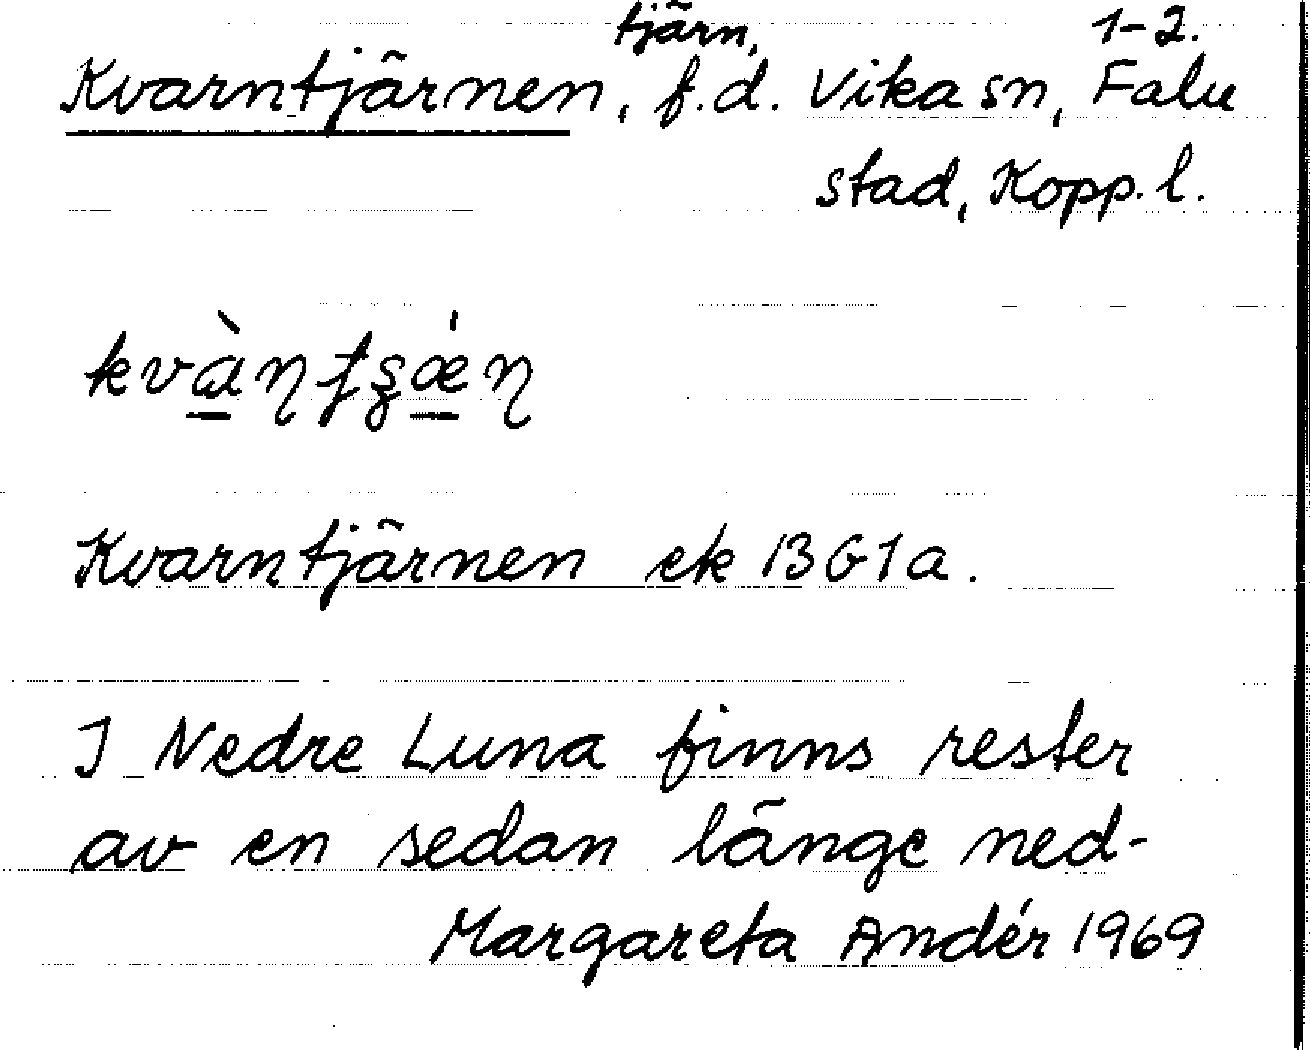 tjärn, 1-2.
Kvarntjärnen, f.d. Vika sn, Falu
stad, Kopp. l.
Kvarntjärnen ek 13G1a.
I Nedre Luna finns rester
av en sedan länge ned-
Margareta Andér 1969